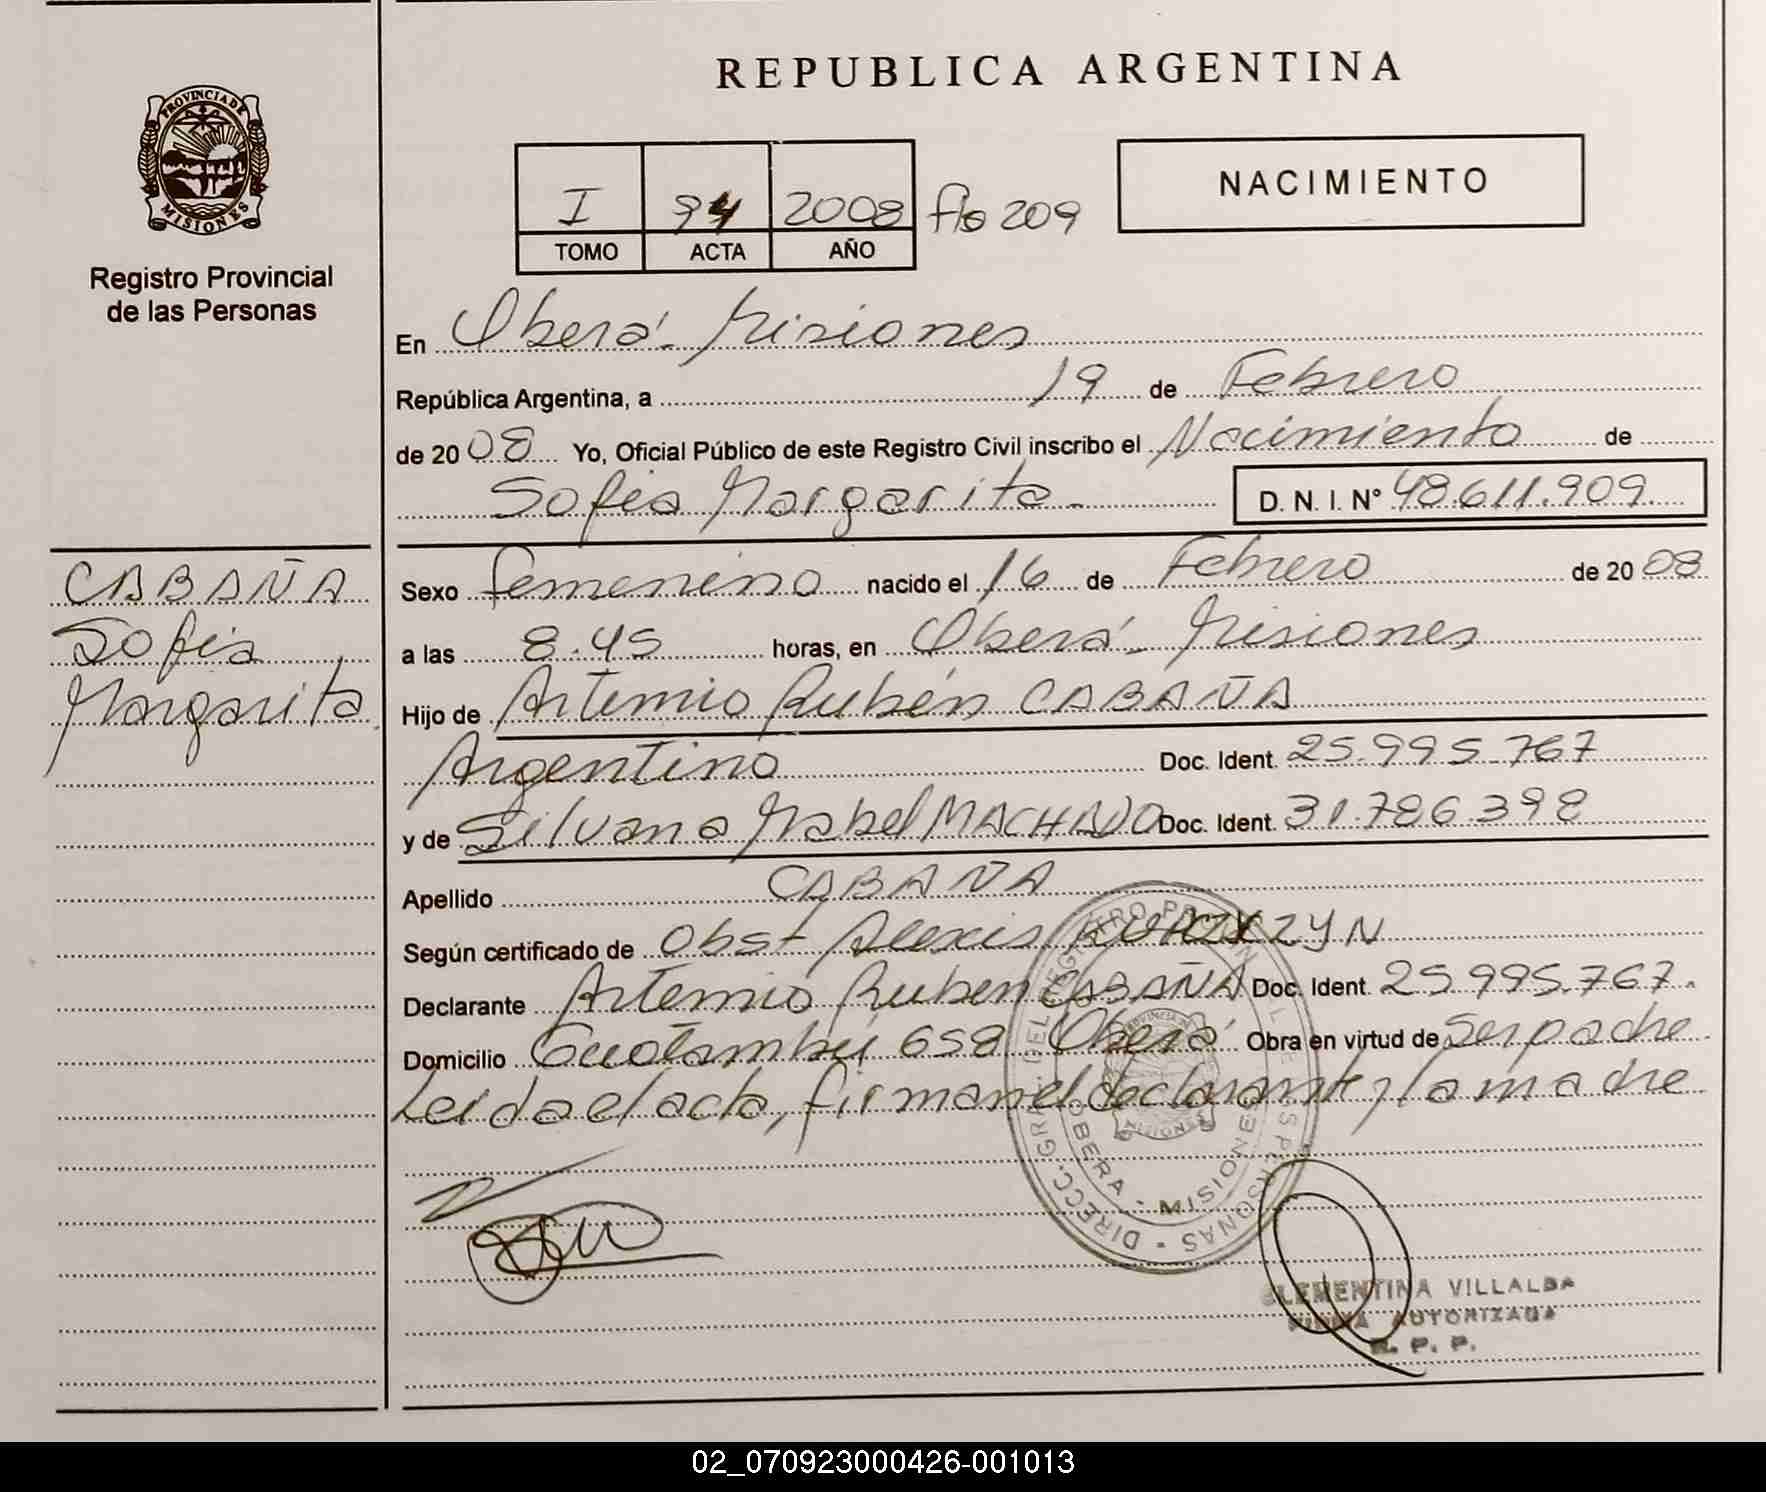 REPUBLICA ARGENTINA
PROVINCIA DE
MISIONES
Registro Provincial
de las Personas
I 94 2008 flo 209
TOMO ACTA AÑO
NACIMIENTO
En Oberá - Misiones
República Argentina, a 19 de Febrero
de 20 08 Yo, Oficial Público de este Registro Civil inscribo el Nacimiento de
Sofia Margarita - D. N. I. Nº 48.611.909
CABAÑA
Sofia
Margarita
Sexo femenino nacido el 16 de Febrero de 20 08
a las 8.45 horas, en Oberá - Misiones
Hijo de Artemio Rubén CABAÑA
Argentino Doc. Ident. 25.995.767
y de Silvana Mabel MACHADO Doc. Ident. 31.786.398
Apellido CABAÑA
Según certificado de Obst Alexis
Declarante Artemio Ruben CABAÑA Doc. Ident. 25.995.767.
Domicilio Guatambú 658 Oberá Obra en virtud de Ser padre
Leida el acta, firman el declarante y la madre
OBERA - MISIONES
CLEMENTINA VILLALBA
FIRMA AUTORIZADA
R. P. P.
02_070923000426-001013